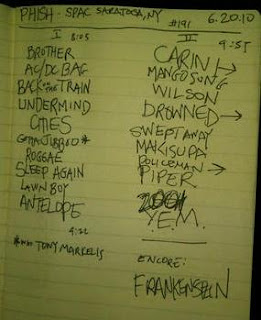 PHISH - SPAC SARATOGA, NY
#191
6.20.10
I 8:05
BROTHER
AC/DC BAG
BACK ON THE TRAIN
UNDERMIND
CITIES
GOTTA JIBBOO*
ROGGAE
SLEEP AGAIN
LAWN BOY
ANTELOPE
9:22
TONY MARKELLIS
II 9:55
CARINI →
MANGO SONG
WILSON
DROWNED →
SWEPT AWAY
MAKISUPA
POLICEMAN →
PIPER
Y.E.M.
ENCORE:
FRANKENSTEIN